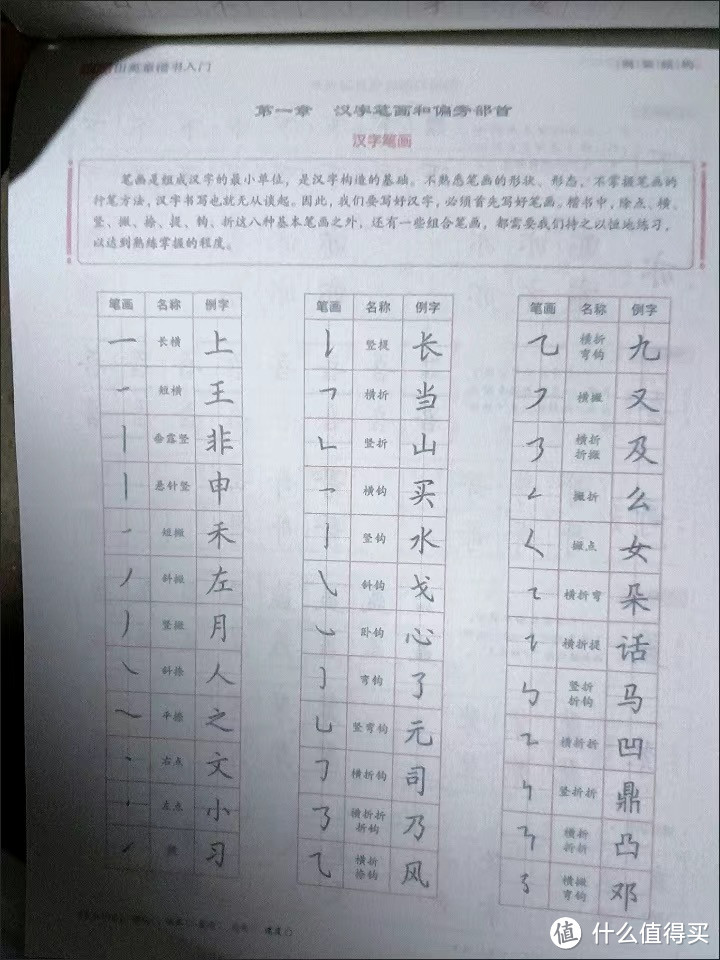 山英章楷书入门
第一章 汉字笔画和偏旁部首
汉字笔画
笔画是组成汉字的最小单位，是汉字构造的基础。不熟悉笔画的形状、形态，不掌握笔画的
行笔方法，汉字书写也就无从谈起。因此，我们要写好汉字，必须首先写好笔画。楷书中，除点、横、
竖、撇、捺、提、钩、折这八种基本笔画之外，还有一些组合笔画，都需要我们持之以恒地练习，
以达到熟练掌握的程度。
笔画 名称 例字
一 长横 上
短横 王
垂露竖 非
悬针竖 申
短撇 禾
斜撇 左
竖撇 月
斜捺 人
平捺 之
右点 文
左点 小
提 习
笔画 名称 例字
竖提 长
横折 当
竖折 山
横钩 买
竖钩 水
斜钩 戈
卧钩 心
弯钩 了
竖弯钩 元
横折钩 司
横折折
折钩 乃
横折
捺钩 风
笔画 名称 例字
横折
弯钩 九
横撇 又
横折
折撇 及
撇折 么
撇点 女
横折弯 朵
横折提 话
竖折
折钩 马
横折折 凹
竖折折 鼎
横折
折折 凸
横撇
弯钩 邓
值 什么值得买